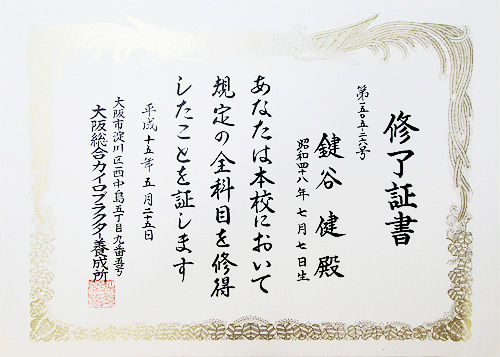 修了証書
第一五〇五-二六号
鍵谷 健 殿
昭和四十八年 七月 七日生
あなたは本校において
規定の全科目を修得
したことを証します
平成十五年 五月二五日
大阪市淀川区西中島五丁目九番五号
大阪総合カイロプラクター養成所